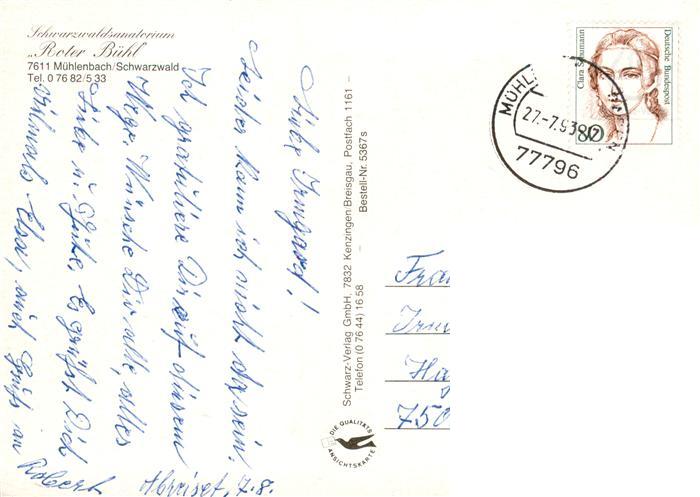 Schwarzwaldsanatorium
„Roter Bühl"
7611 Mühlenbach/Schwarzwald
Tel. 0 76 82/5 33
Liebe Irmgard!
Leider kann ich nicht da sein,
Ich gratuliere Dir auf diesem
Wege. Wünsche Dir alle, alles
Liebe u. Gute. Es grüßt Dich
vielmals Elsa, auch Gruß an
Robert
Abreise, 7.8.
Schwarz-Verlag GmbH, 7832 Kenzingen/Breisgau, Postfach 1161 –
Telefon (0 76 44) 16 58 – Bestell-Nr. 5367s
DIE QUALITÄTS
ANSICHTSKARTE
Clara Schumann
Deutsche Bundespost
80
27.-7.93
77796
Frau
Irm
Ha
750